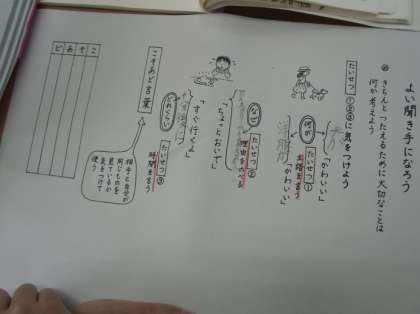 よい聞き手になろう
め きちんとつたえるために大切なことは
何か考えよう
たいせつ
①②③に気をつけよう
「かわいい」
何が
たいせつ①
主語を言う
「かわいい」
「ちょっとおいで」
なぜ
たいせつ②
理由をのべる
「すぐ行くよ」
どれくらい
たいせつ③
時間を言う
こそあど言葉
相手と自分が
同じものを
見ているか
気をつけて
使う
こ
そ
あ
ど